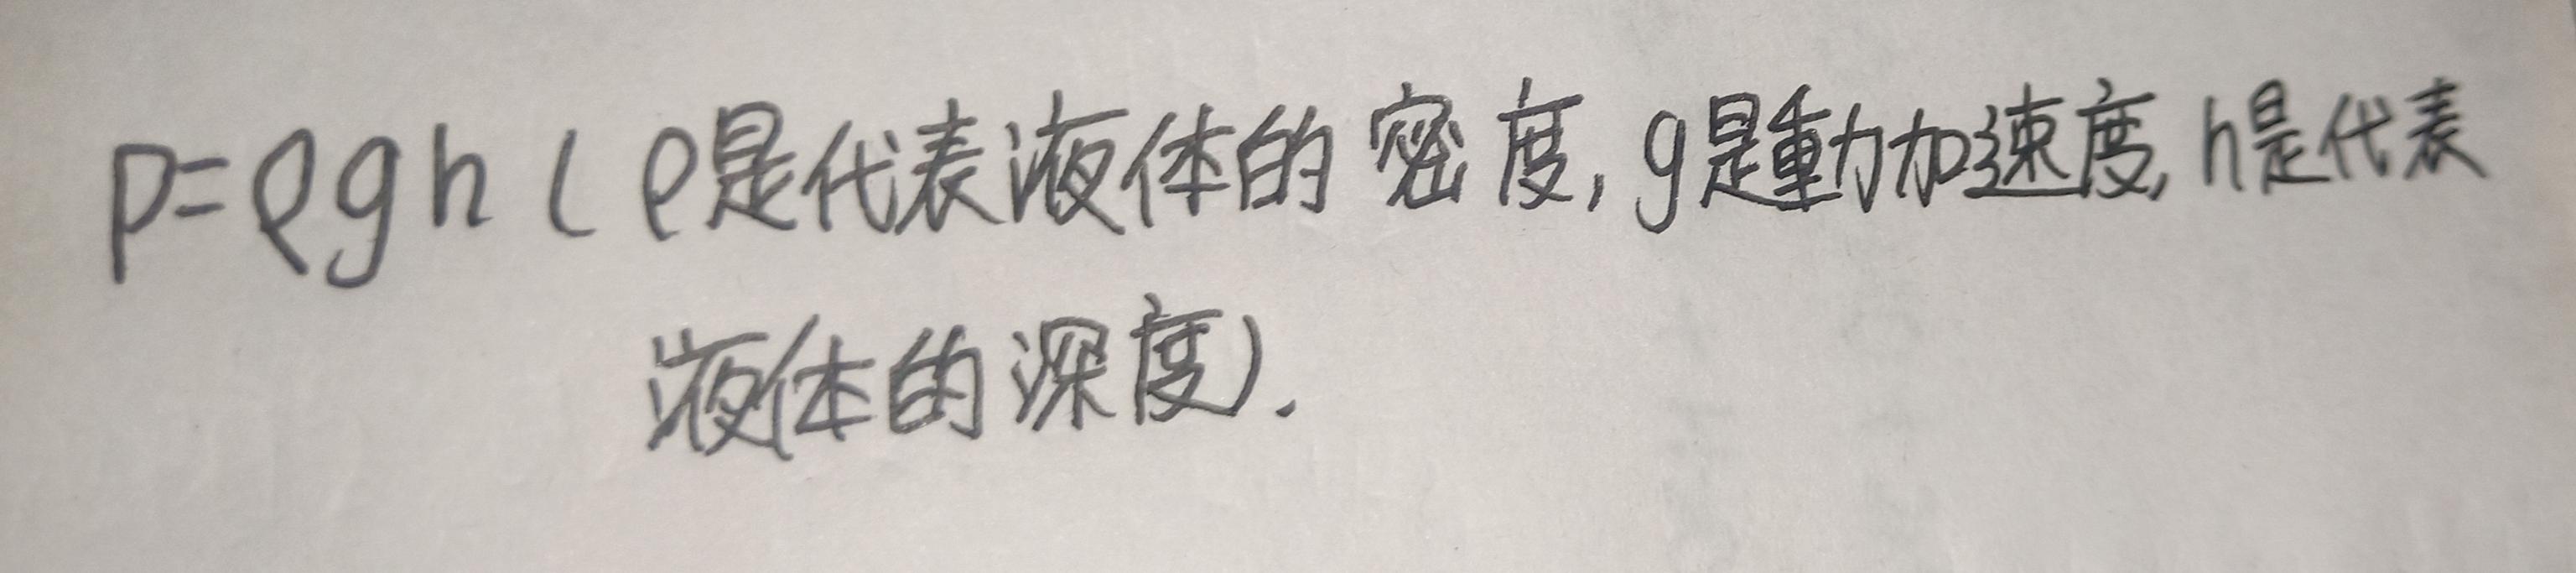 p=ρgh (ρ是代表液体的密度, g是動力加速度, h是代表
液体的深度).